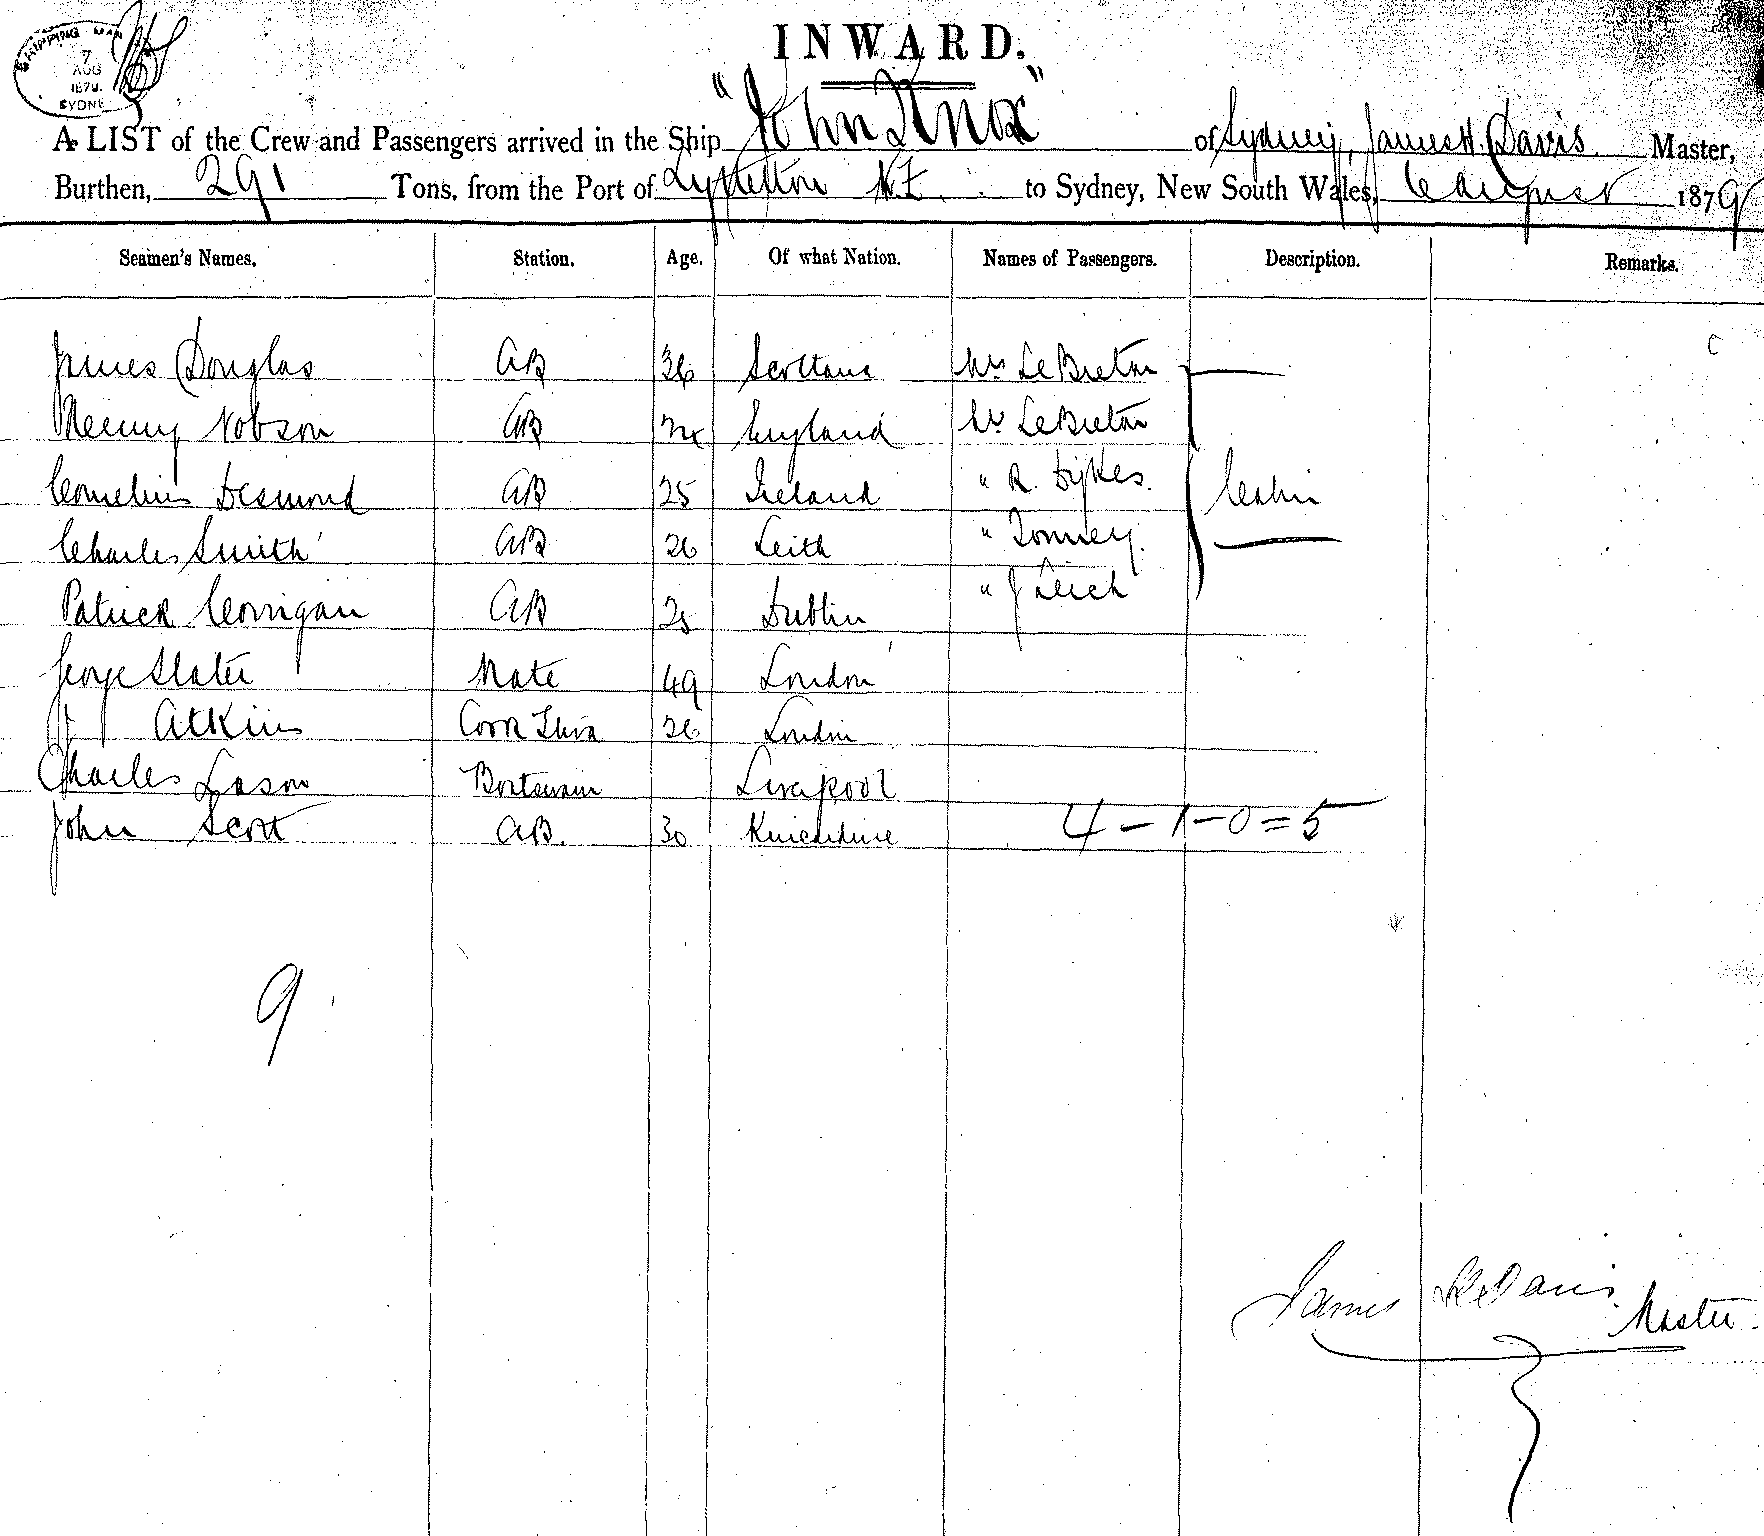 SHIPPING MA
7
AUG
1879.
SYDNE
INWARD.
A LIST of the Crew and Passengers arrived in the Ship "John Knox" of Sydney, James H. Davis Master,
Burthen, 291 Tons, from the Port of Lyttelton NZ to Sydney, New South Wales, 6 August 1879
Seamen's Names. Station. Age. Of what Nation. Names of Passengers. Description. Remarks.
James Douglas AB 36 Scotland Mrs LeBreton
Henry Nobson AB England Mr LeBreton
Cornelius Desmond AB 25 Ireland " R. Dykes. Cabin
Charles Smith AB 26 Leith "
Patrick Corrigan AB 25 Dublin " J Leich
George Slater Mate 49 London
Atkins Cook 26 London
Charles Lason Boatswain Liverpool
John Scott AB. 30 Kincardine 4-1-0=5
9
James H Davis Master.